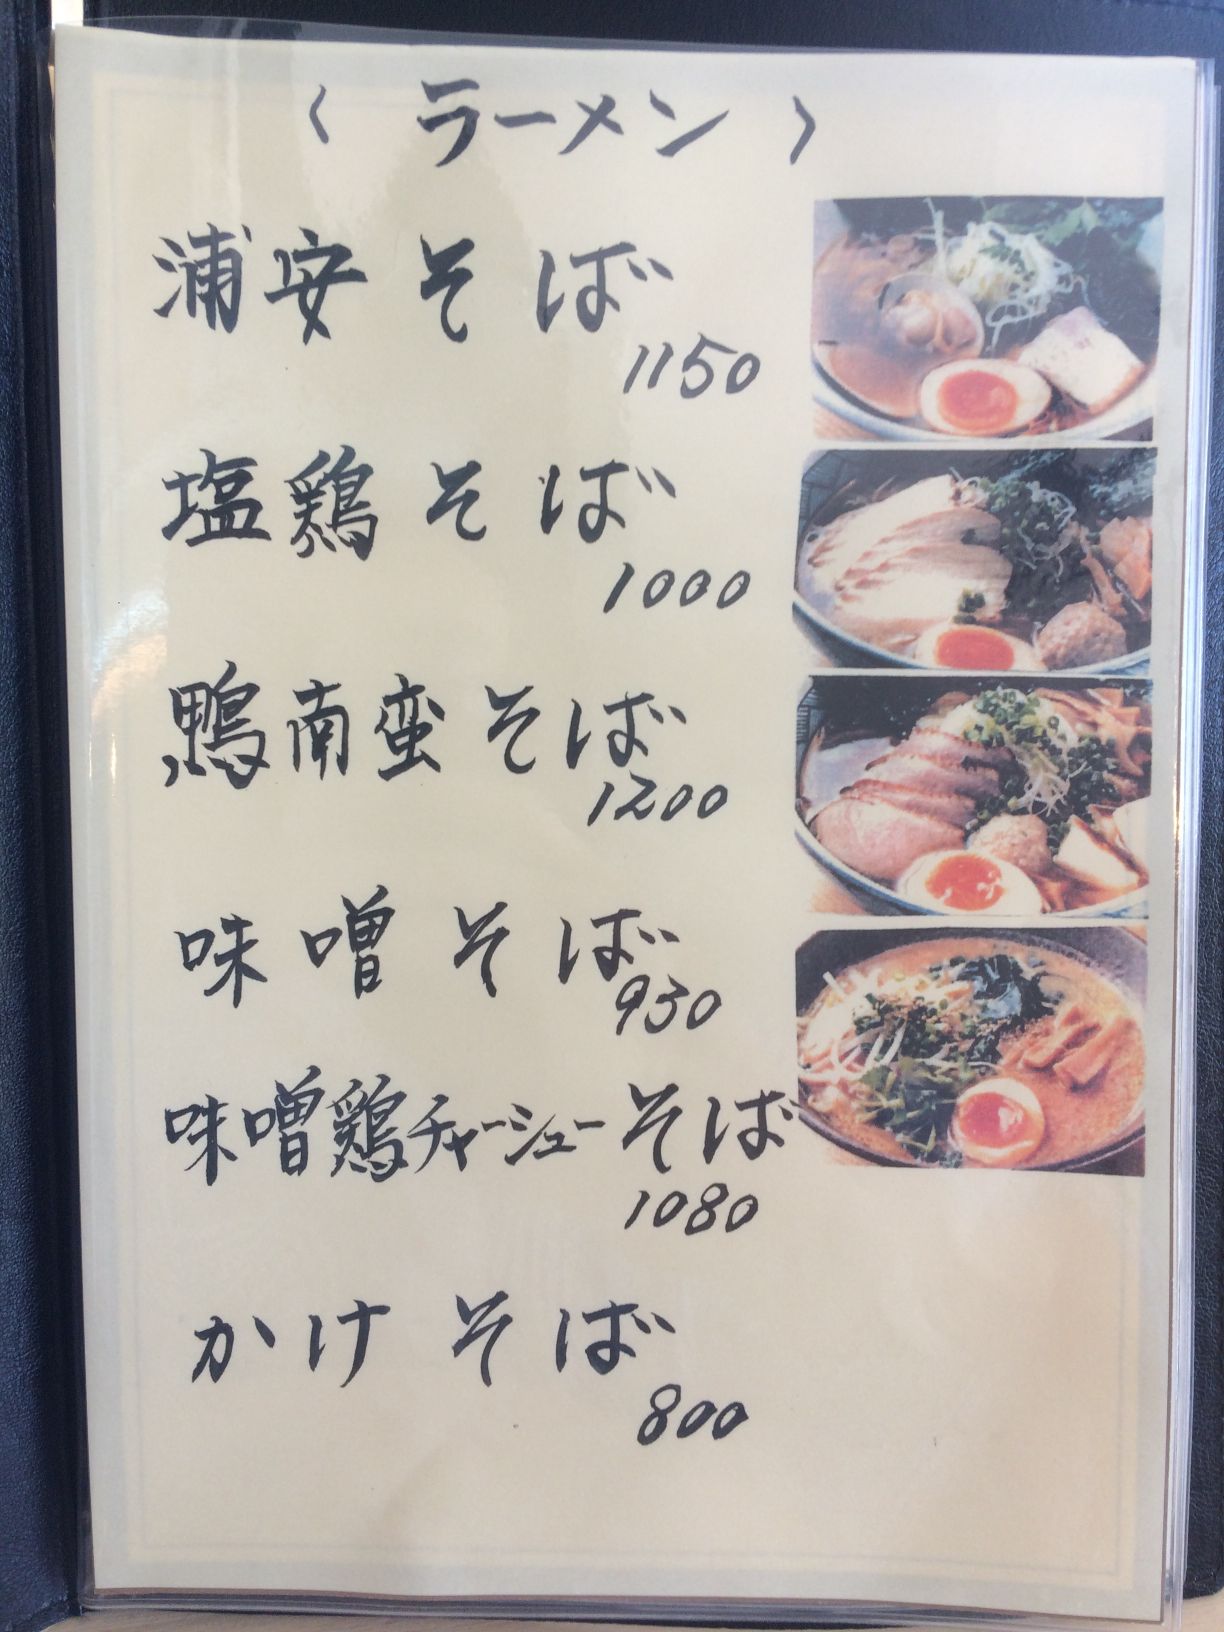 〈 ラーメン 〉
浦安そば
1150
塩鶏そば
1000
鴨南蛮そば
1200
味噌そば
930
味噌鶏チャーシューそば
1080
かけそば
800